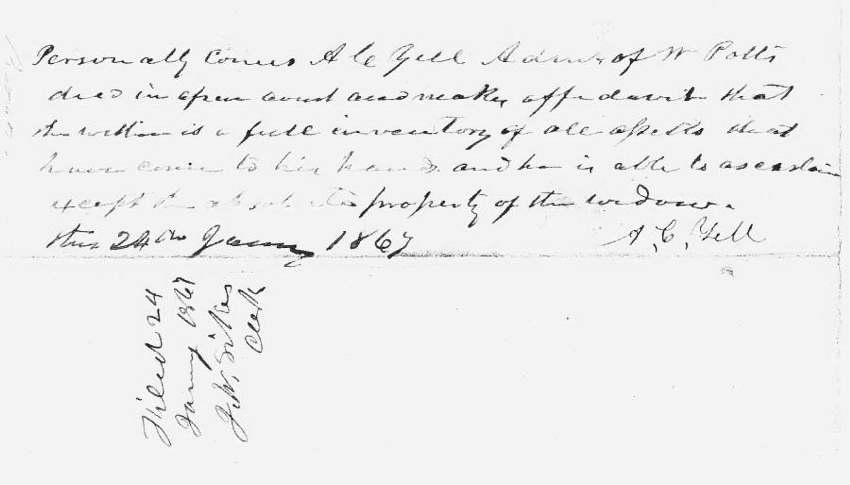 Personally Comes A C Yell Admr of W Potts
decd in open court and makes affedavit that
the within is a full inventory of all assetts that
have come to his hands and he is able to ascertain
except the absolute property of the widow.
this 24th Januy 1867
A. C. Yell
Filed 24
Januy 1867
J. W. Sikes
Clerk